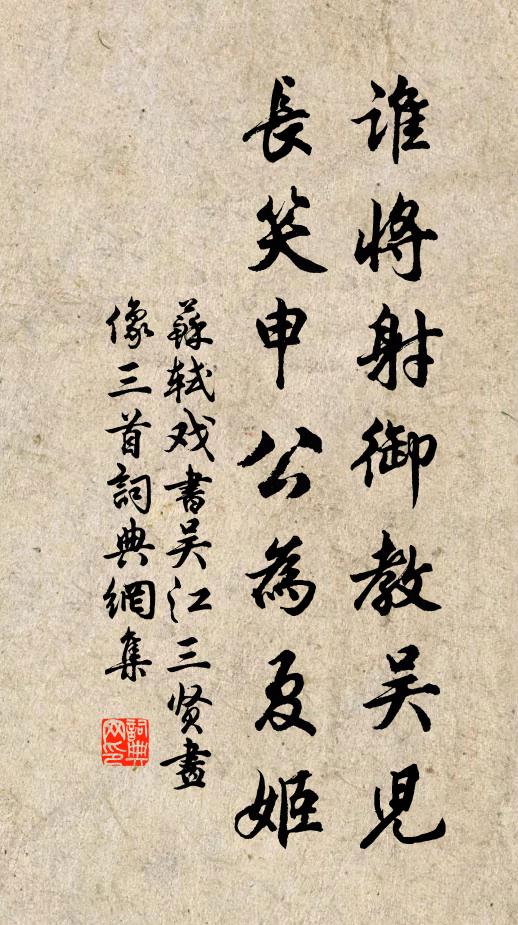 谁將射御教吴兒
長笑申公為夏姬
蘇轼戏書吴江三贤畫
像三首詞典網集
詞典网印